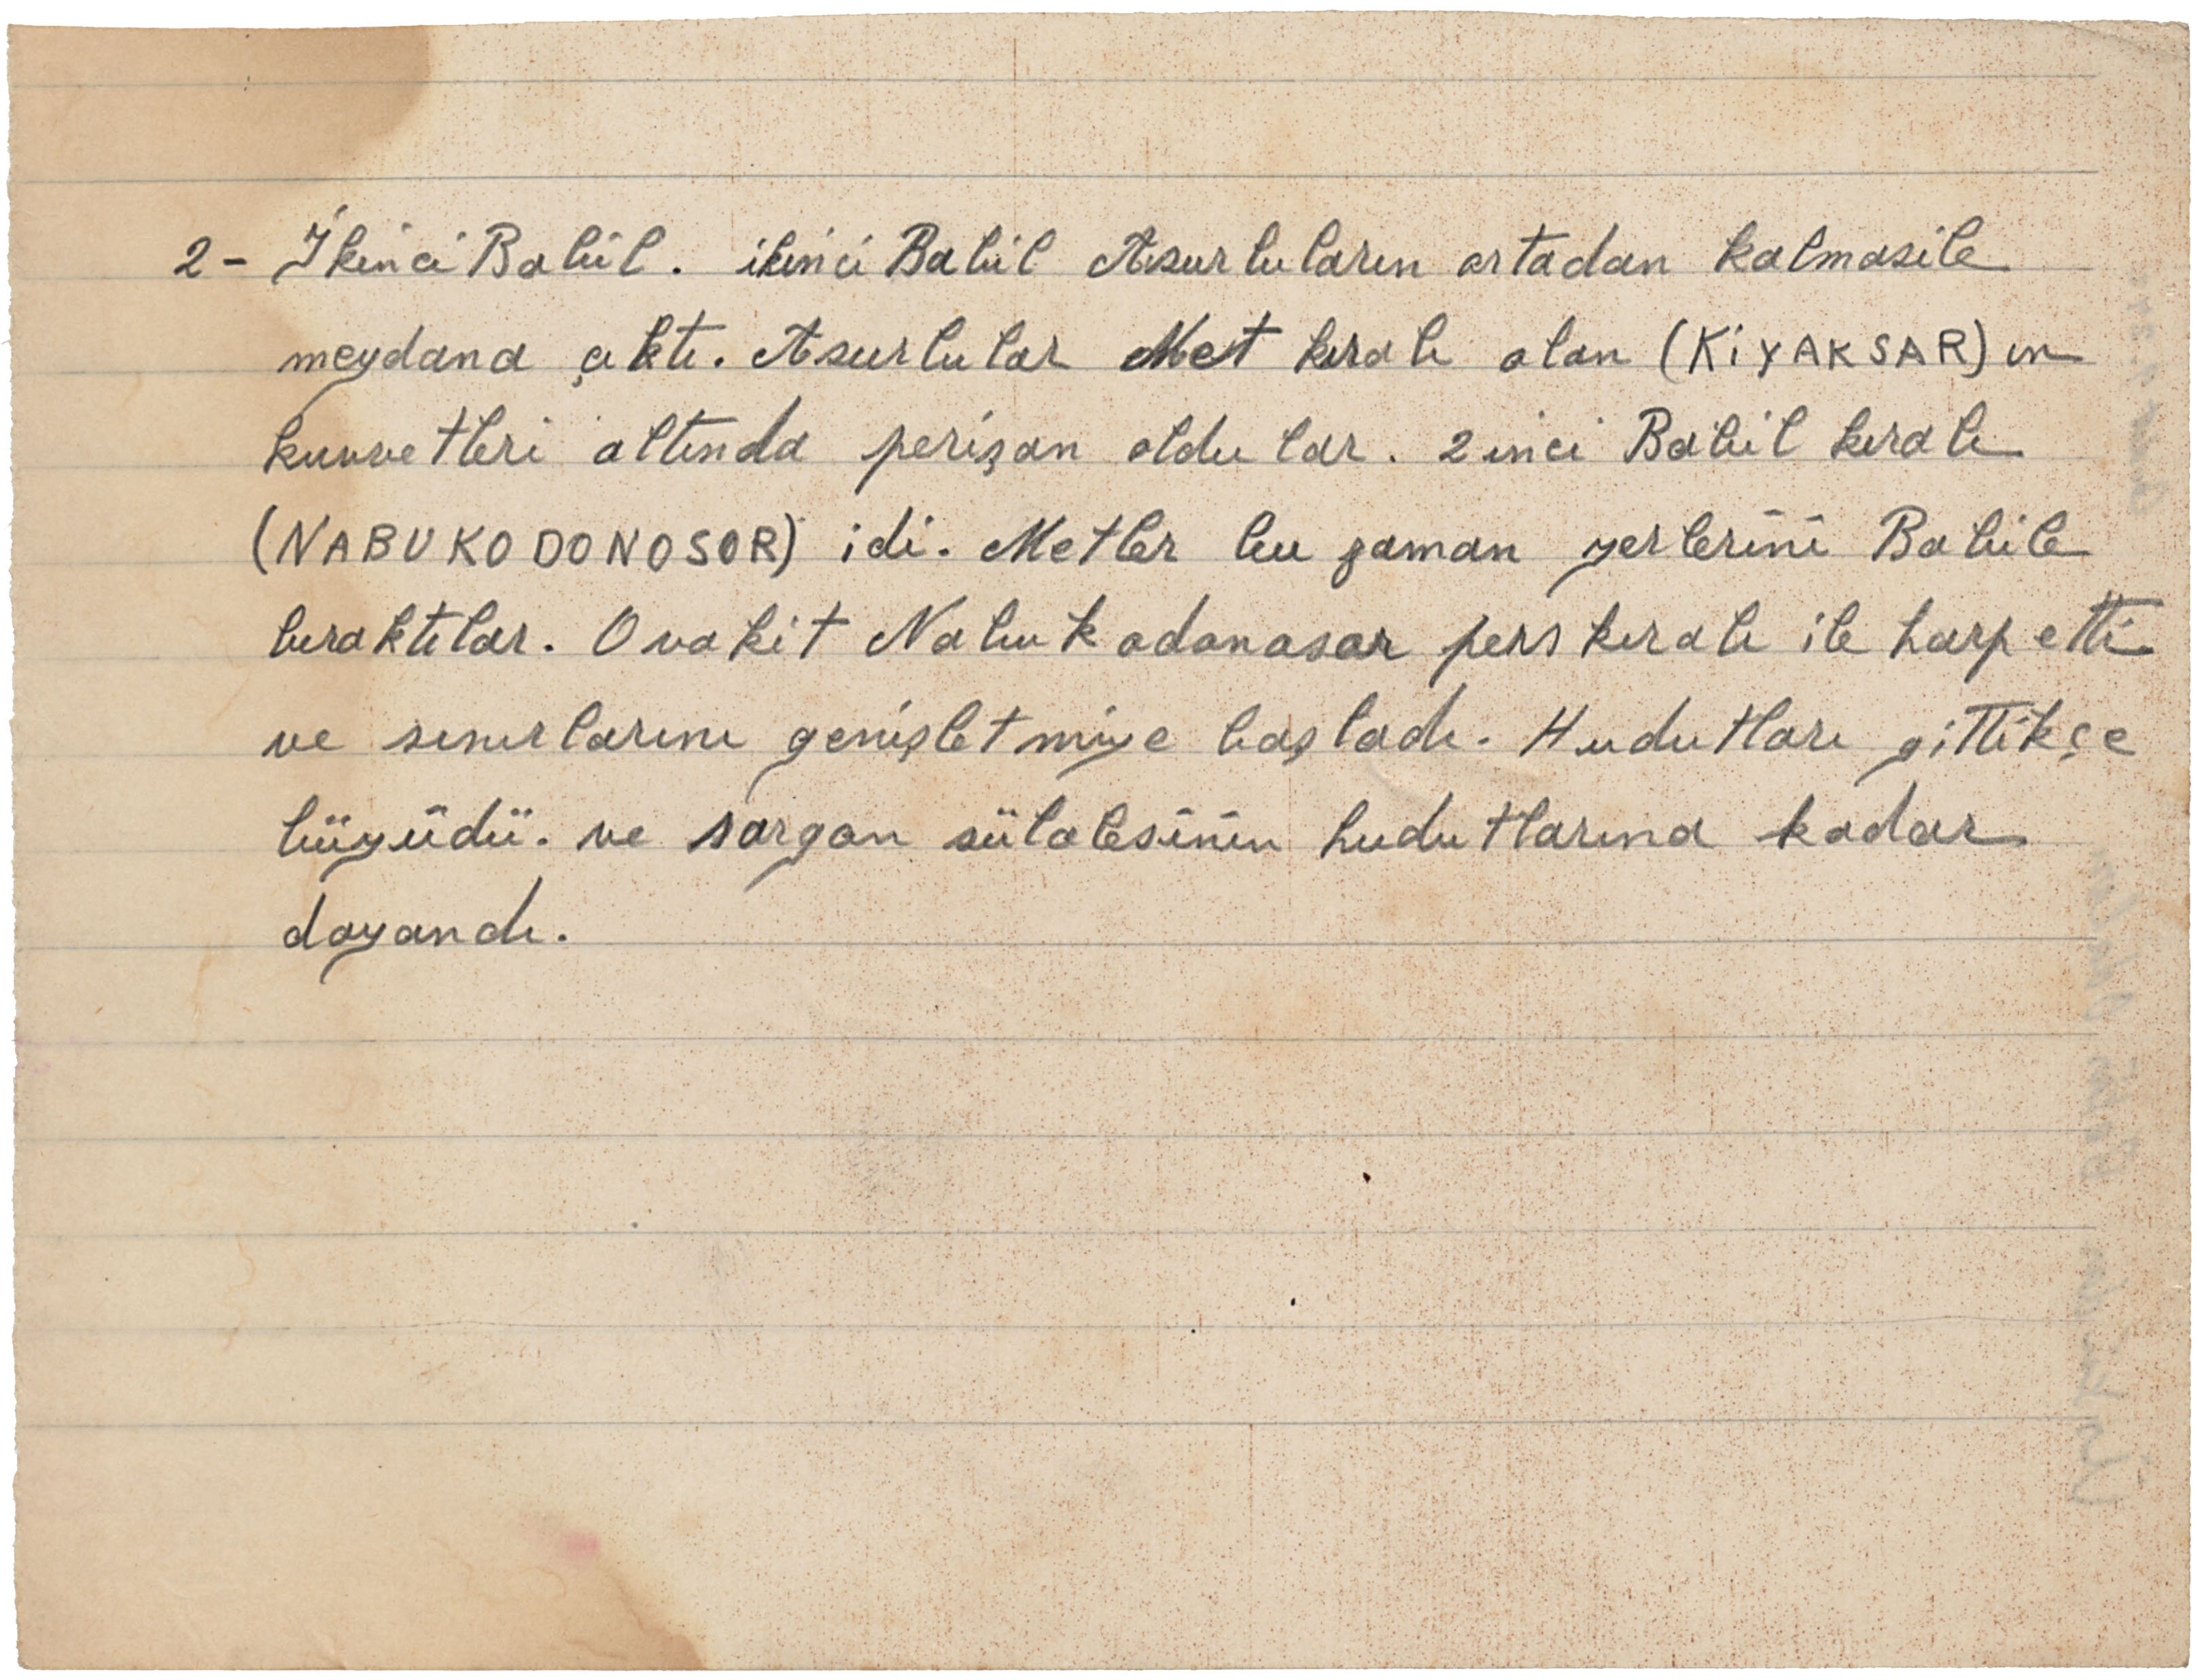 2- İkinci Babil. ikinci Babil Asurluların ortadan kalmasile
meydana çıktı. Asurlular Met kıralı olan (KİYAKSAR) ın
kuvvetleri altında perişan oldular. 2inci Babil kıralı
(NABUKODONOSOR) idi. Metler bu zaman yerlerini Babile
bıraktılar. O vakit Nabukodonosor pers kıralı ile harp etti
ve sınırlarını genişletmiye başladı. Hudutları gittikçe
büyüdü. ve sargon sülalesinin hudutlarına kadar
dayandı.